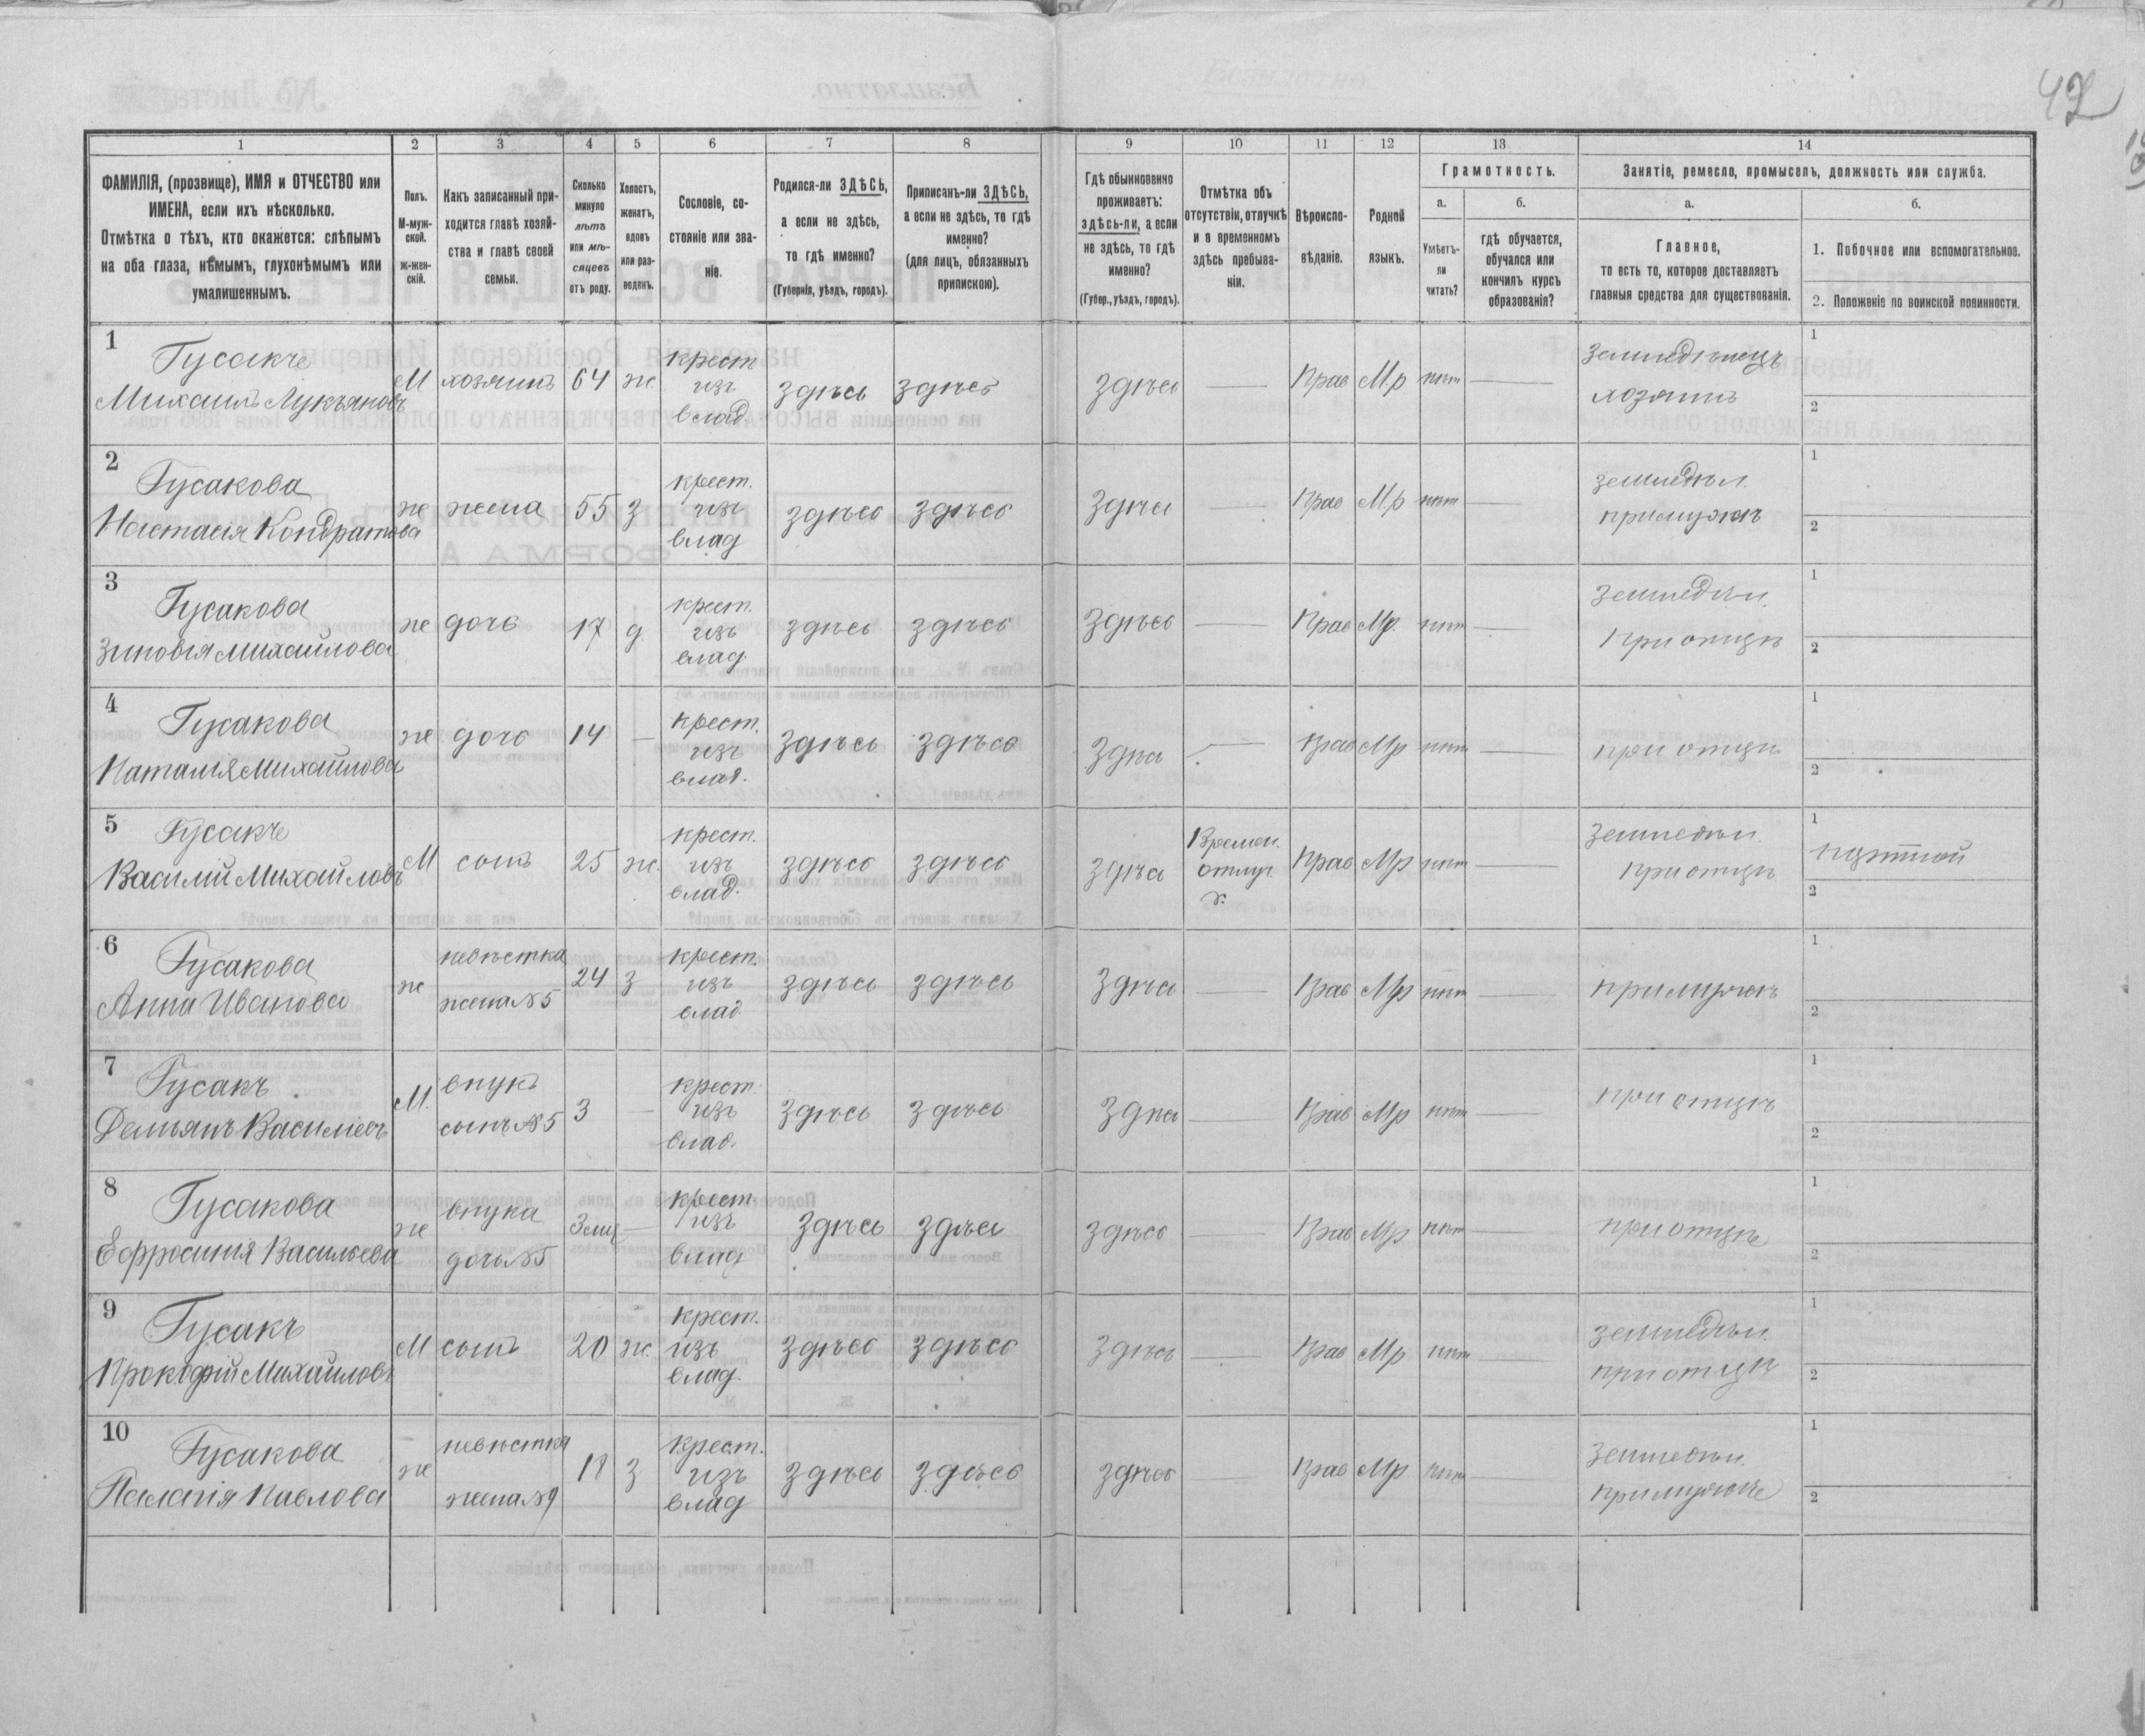 42
1 2 3 4 5 6 7 8 9 10 11 12 13 14
ФАМИЛІЯ, (прозвище), ИМЯ и ОТЧЕСТВО или
ИМЕНА, если ихъ нѣсколько.
Отмѣтка о тѣхъ, кто окажется: слѣпымъ
на оба глаза, нѣмымъ, глухонѣмымъ или
умалишеннымъ.
Полъ.
М-муж-
ской.
Ж-жен-
скій.
Какъ записанный при-
ходится главѣ хозяй-
ства и главѣ своей
семьи.
Сколько
минуло
лѣтъ
или мѣ-
сяцевъ
отъ роду.
Холостъ,
женатъ,
вдовъ
или раз-
веденъ.
Сословіе, со-
стояніе или зва-
ніе.
Родился-ли ЗДѢСЬ,
а если не здѣсь,
то гдѣ именно?
(Губернія, уѣздъ, городъ).
Приписанъ-ли ЗДѢСЬ,
а если не здѣсь, то гдѣ
именно?
(для лицъ, обязанныхъ
припискою).
Гдѣ обыкновенно
проживаетъ:
здѣсь-ли, а если
не здѣсь, то гдѣ
именно?
(Губер., уѣздъ, городъ).
Отмѣтка объ
отсутствіи, отлучкѣ
и о временномъ
здѣсь пребыва-
ніи.
Вѣроиспо-
вѣданіе.
Родной
языкъ.
Грамотность.
а.
Умѣетъ-
ли
читать?
б.
гдѣ обучается,
обучался или
кончилъ курсъ
образованія?
Занятіе, ремесло, промыселъ, должность или служба.
а.
Главное,
то есть то, которое доставляетъ
главныя средства для существованія.
б.
1. Побочное или вспомогательное.
2. Положеніе по воинской повинности.
1
Гусакъ
Михаилъ Лукьяновъ
М хозяинъ 64 ж.
крест
изъ
влад.
здѣсь здѣсь здѣсь — Прав М.р нѣт —
Земледѣлецъ
хозяинъ
1
2
2
Гусакова
Настасія Кондратова
ж жена 55 з
крест.
изъ
влад
здѣсь здѣсь здѣсь — Прав М.р нѣт —
земледѣл.
при мужѣ
1
2
3
Гусакова
Зиновія Михайлова
ж дочь 17 д
крест.
изъ
влад
здѣсь здѣсь здѣсь — Прав Мр. нѣт —
Земледѣл.
При отцѣ
1
2
4
Гусакова
Наталія Михайлова
ж дочь 14 —
крест.
изъ
влад.
здѣсь здѣсь здѣсь — Прав Мр нѣт —
при отцѣ
1
2
5
Гусакъ
Василій Михайловъ
М сынъ 25 ж.
крест.
изъ
влад.
здѣсь здѣсь здѣсь
Времен.
отлуч
Прав Мр нѣт —
Земледѣл
При отцѣ
1
2
6
Гусакова
Анна Иванова
ж
невѣстка
жена №5
24 з
крест.
изъ
влад.
здѣсь здѣсь здѣсь — Прав Мр нѣт —
при мужѣ
1
2
7
Гусакъ
Демьянъ Васильевъ
М.
внукъ
сынъ №5
3 —
крест.
изъ
влад.
здѣсь здѣсь здѣсь — Прав Мр нѣт —
при отцѣ
1
2
8
Гусакова
Ефросинія Васильева
ж
внука
дочь №5
3 мц —
крест
изъ
влад
здѣсь здѣсь здѣсь — Прав Мр нѣт —
при отцѣ
1
2
9
Гусакъ
Прокофій Михайловъ
М сынъ 20 ж.
крест.
изъ
влад.
здѣсь здѣсь здѣсь — Прав Мр нѣт —
земледѣл.
при отцѣ
1
2
10
Гусакова
Пелагія Павлова
ж
невѣстка
жена №9
18 з
крест.
изъ
влад
здѣсь здѣсь здѣсь — Прав Мр нѣт —
Земледѣл.
при мужѣ
1
2